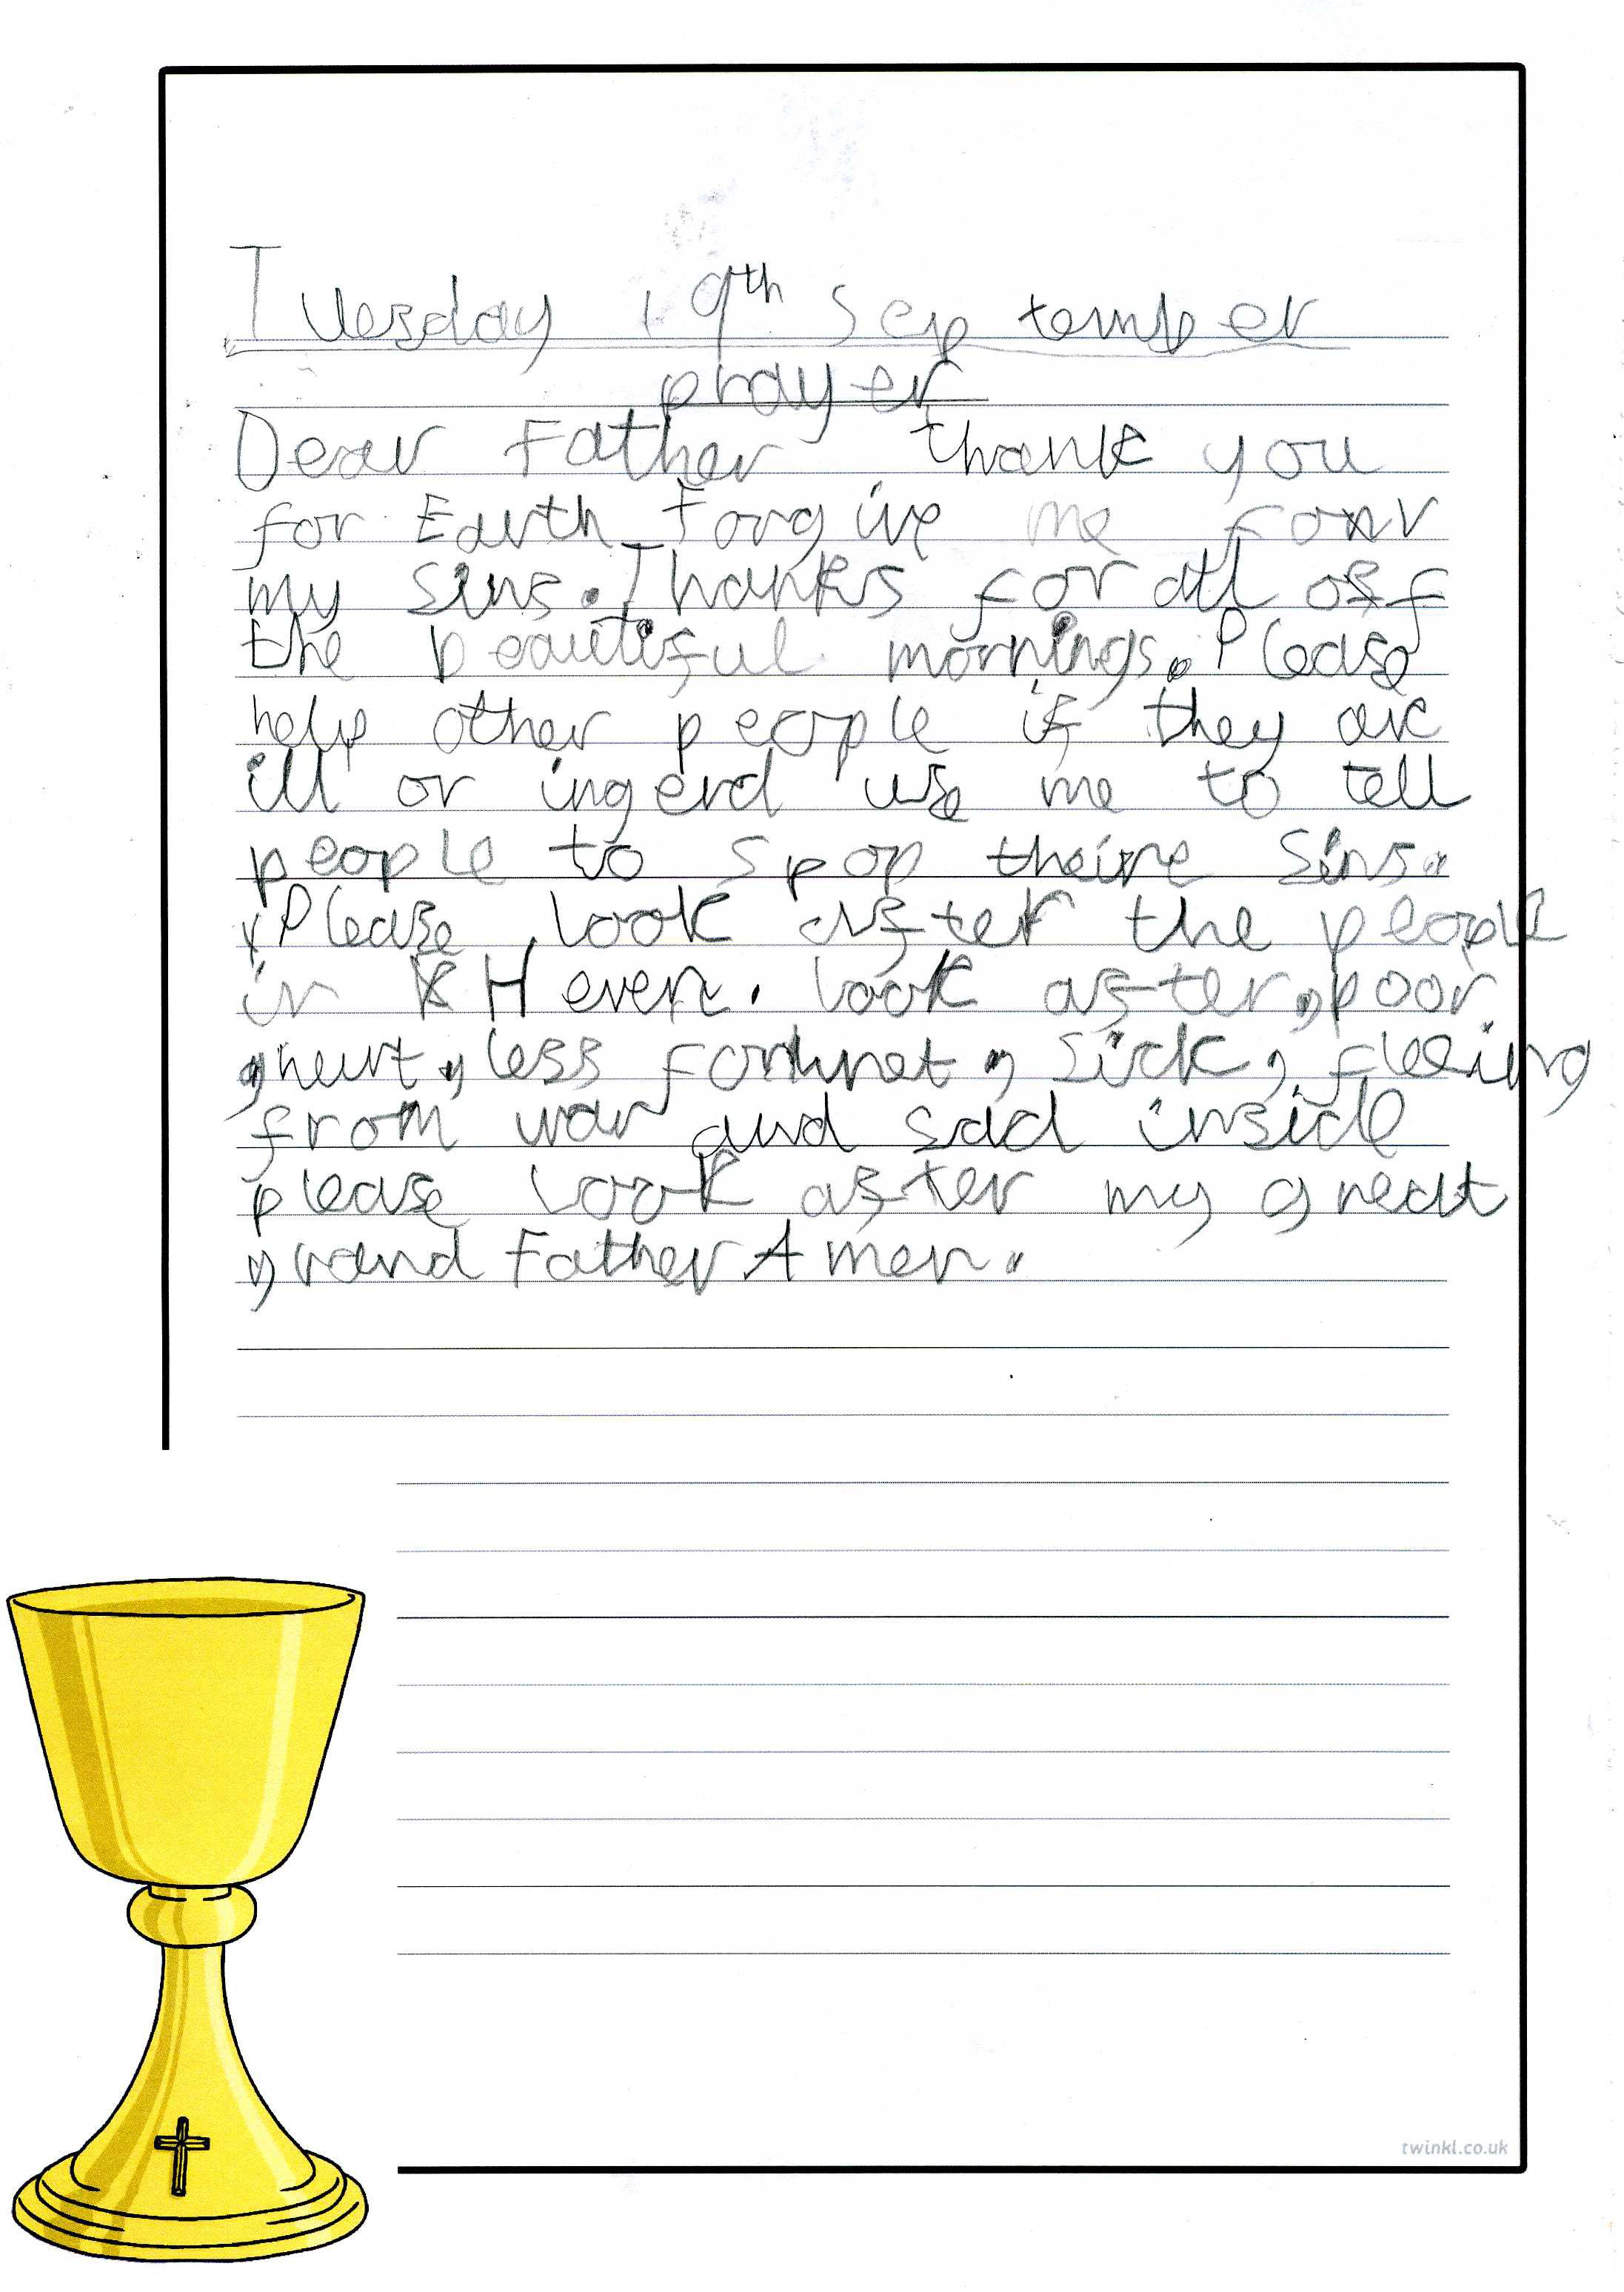 Tuesday 19th September
prayer
Dear Father thank you
for Earth Forgive me for
my sins. Thanks for all off
the beautiful mornings. Please
help other people if they are
ill or ingerd use me to tell
people to spop theire sins.
Please look after the people
in Heven. look after, poor
, heurt, less fortunet, sick, fleeing
from war and sad inside
please look after my great
grand Father Amen.
twinkl.co.uk